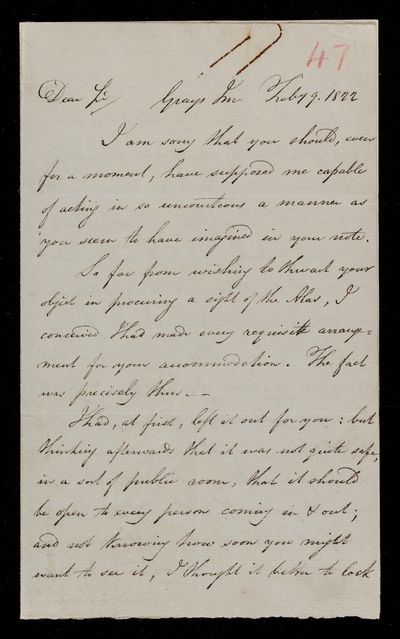 47
Dear Sir/ Grays Inn Feby 9. 1822
I am sorry that you should, even
for a moment, have supposed me capable
of acting in so uncourteous a manner as
you seem to have imagined in your note.
So far from wishing to thwart your
object in procuring a sight of the Atlas, I
conceived I had made every requisite arrange=
ment for your accommodation. The fact
was precisely thus. —
I had, at first, left it out for you: but
thinking afterwards that it was not quite safe,
in a sort of public room, that it should
be open to every person coming in & out;
and not knowing how soon you might
want to see it, I thought it better to lock